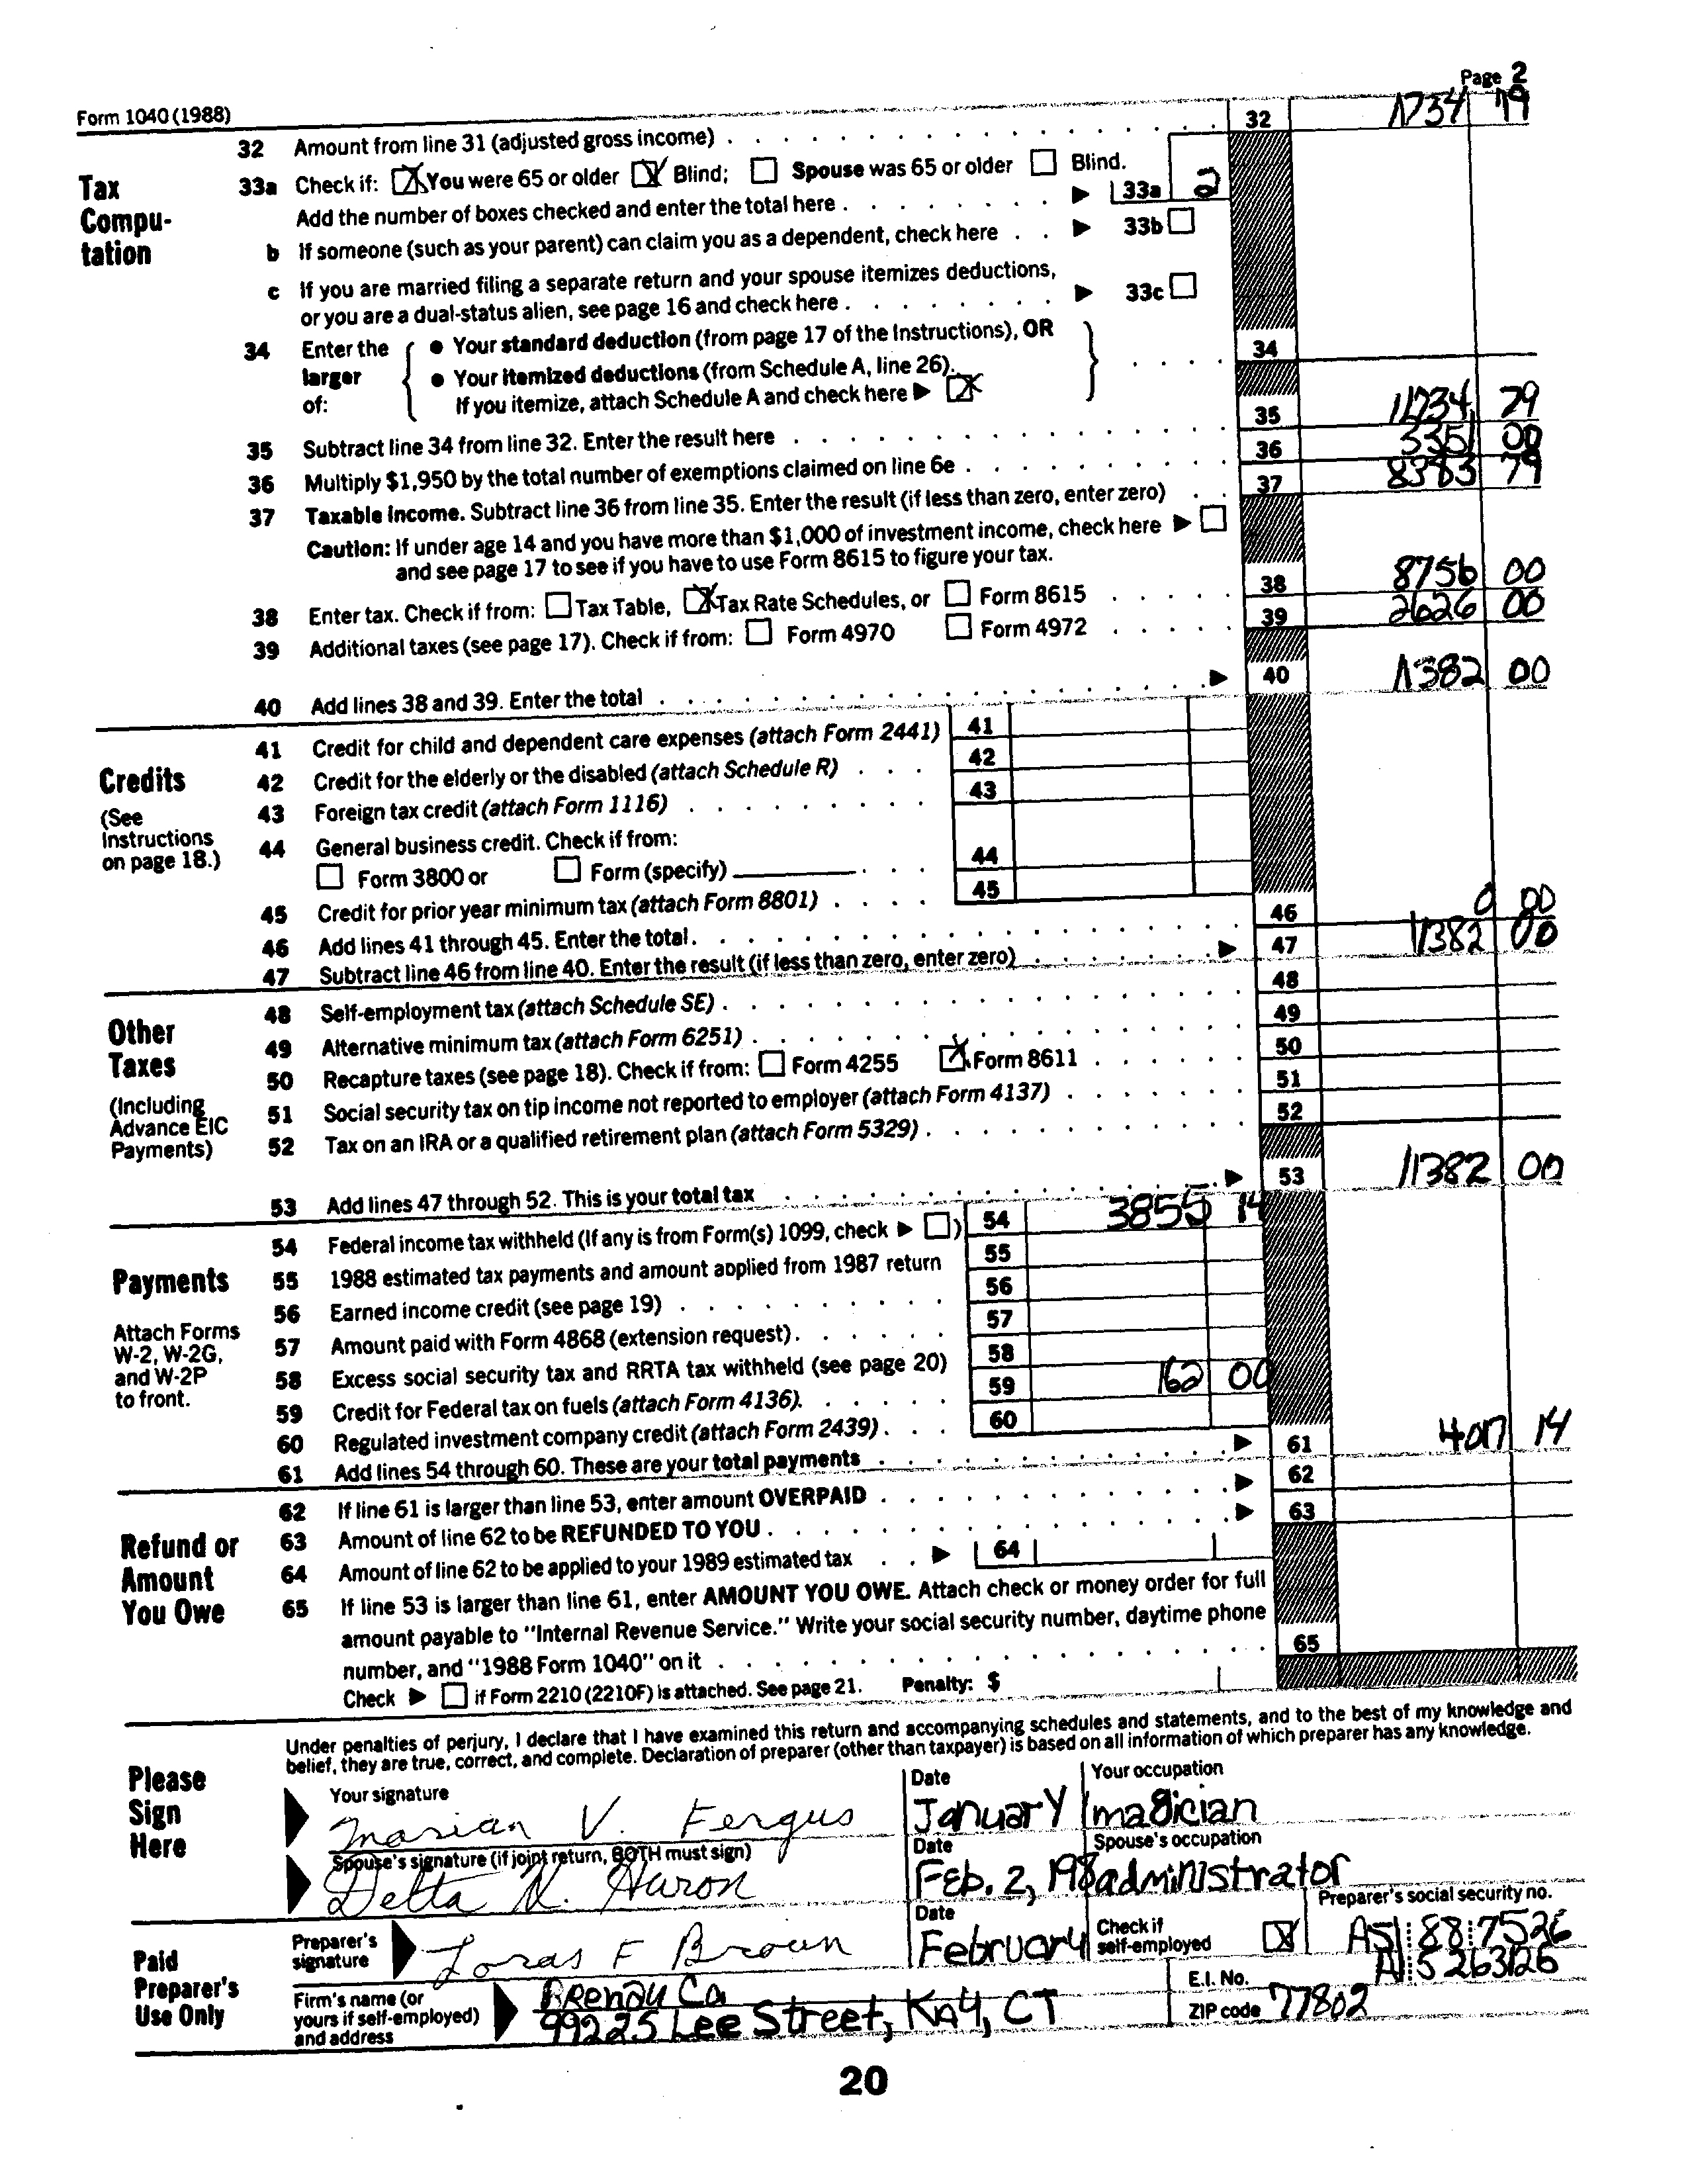 Form 1040 (1988)
Page 2
Tax Compu-tation
32 Amount from line 31 (adjusted gross income) 32 11734 79
33a Check if: You were 65 or older Blind; Spouse was 65 or older Blind.
Add the number of boxes checked and enter the total here 33a 2
b If someone (such as your parent) can claim you as a dependent, check here 33b
c If you are married filing a separate return and your spouse itemizes deductions,
or you are a dual-status alien, see page 16 and check here 33c
34 Enter the larger of:
• Your standard deduction (from page 17 of the Instructions), OR
• Your itemized deductions (from Schedule A, line 26).
If you itemize, attach Schedule A and check here
34
35 Subtract line 34 from line 32. Enter the result here 35 11734 79
36 Multiply $1,950 by the total number of exemptions claimed on line 6e 36 3351 00
37 Taxable income. Subtract line 36 from line 35. Enter the result (if less than zero, enter zero) 37 8383 79
Caution: If under age 14 and you have more than $1,000 of investment income, check here
and see page 17 to see if you have to use Form 8615 to figure your tax.
38 Enter tax. Check if from: Tax Table, Tax Rate Schedules, or Form 8615 38 8756 00
39 Additional taxes (see page 17). Check if from: Form 4970 Form 4972 39 2626 00
40 Add lines 38 and 39. Enter the total 40 11382 00
Credits
(See Instructions on page 18.)
41 Credit for child and dependent care expenses (attach Form 2441) 41
42 Credit for the elderly or the disabled (attach Schedule R) 42
43 Foreign tax credit (attach Form 1116) 43
44 General business credit. Check if from:
Form 3800 or Form (specify) 44
45 Credit for prior year minimum tax (attach Form 8801) 45
46 Add lines 41 through 45. Enter the total. 46 0 00
47 Subtract line 46 from line 40. Enter the result (if less than zero, enter zero) 47 11382 00
Other Taxes
(Including Advance EIC Payments)
48 Self-employment tax (attach Schedule SE) 48
49 Alternative minimum tax (attach Form 6251) 49
50 Recapture taxes (see page 18). Check if from: Form 4255 Form 8611 50
51 Social security tax on tip income not reported to employer (attach Form 4137) 51
52 Tax on an IRA or a qualified retirement plan (attach Form 5329) 52
53 Add lines 47 through 52. This is your total tax 53 11382 00
Payments
Attach Forms W-2, W-2G, and W-2P to front.
54 Federal income tax withheld (If any is from Form(s) 1099, check ) 54 3855 14
55 1988 estimated tax payments and amount applied from 1987 return 55
56 Earned income credit (see page 19) 56
57 Amount paid with Form 4868 (extension request) 57
58 Excess social security tax and RRTA tax withheld (see page 20) 58
59 Credit for Federal tax on fuels (attach Form 4136). 59 162 00
60 Regulated investment company credit (attach Form 2439) 60
61 Add lines 54 through 60. These are your total payments 61 4017 14
Refund or Amount You Owe
62 If line 61 is larger than line 53, enter amount OVERPAID 62
63 Amount of line 62 to be REFUNDED TO YOU 63
64 Amount of line 62 to be applied to your 1989 estimated tax 64
65 If line 53 is larger than line 61, enter AMOUNT YOU OWE. Attach check or money order for full
amount payable to "Internal Revenue Service." Write your social security number, daytime phone
number, and "1988 Form 1040" on it 65
Check if Form 2210 (2210F) is attached. See page 21. Penalty: $
Please Sign Here
Under penalties of perjury, I declare that I have examined this return and accompanying schedules and statements, and to the best of my knowledge and
belief, they are true, correct, and complete. Declaration of preparer (other than taxpayer) is based on all information of which preparer has any knowledge.
Your signature Date Your occupation
Marian V. Fergus January magician
Spouse's signature (if joint return, BOTH must sign) Date Spouse's occupation
Delta N. Aaron Feb. 2, 198 administrator
Paid Preparer's Use Only
Preparer's signature Date Check if self-employed Preparer's social security no.
Loras F Brown February 88 7526
Firm's name (or yours if self-employed) and address
Co E.I. No.
99225 Lee Street, CT ZIP code 77802
20